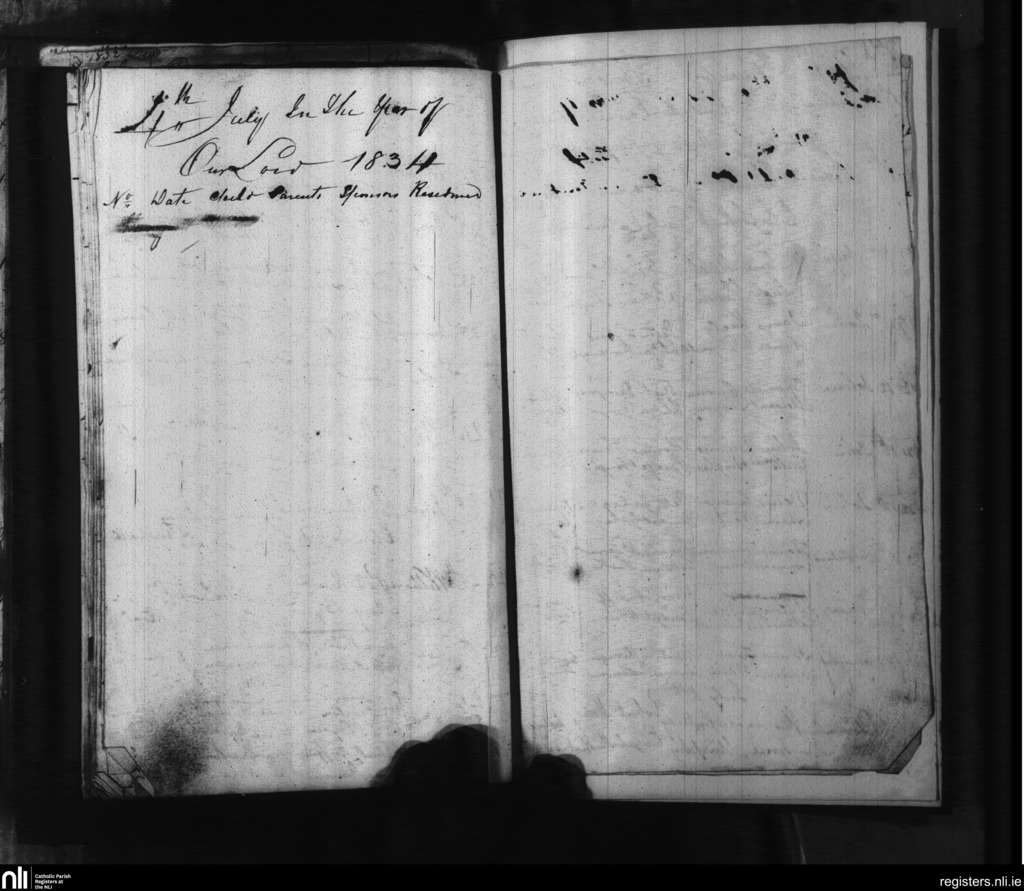 4th July In The Year of
Our Lord 1834
No. Date Child Parents Sponsors
nli Catholic Parish
Registers at
the NLI
registers.nli.ie